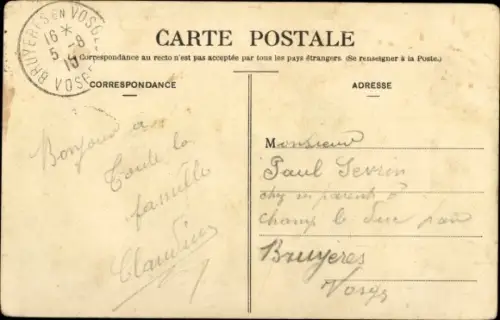 BRUYERES EN VOSGES
16 *
5 - 8
VOSGES
CARTE POSTALE
La Correspondance au recto n'est pas acceptée par tous les pays étrangers. (Se renseigner à la Poste.)
CORRESPONDANCE
ADRESSE
Bonjour a
Toute la
famille
Claudius
Monsieur
Paul Sevrin
chez parents à
champ le duc par
Bruyères
Vosges